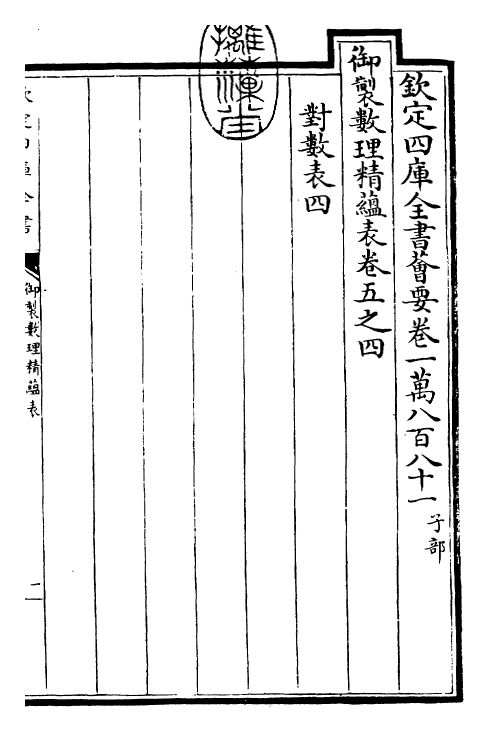 欽定四庫全書薈要卷一萬八百八十一 子部
御製數理精蘊表卷五之四
對數表四
御製數理精蘊表